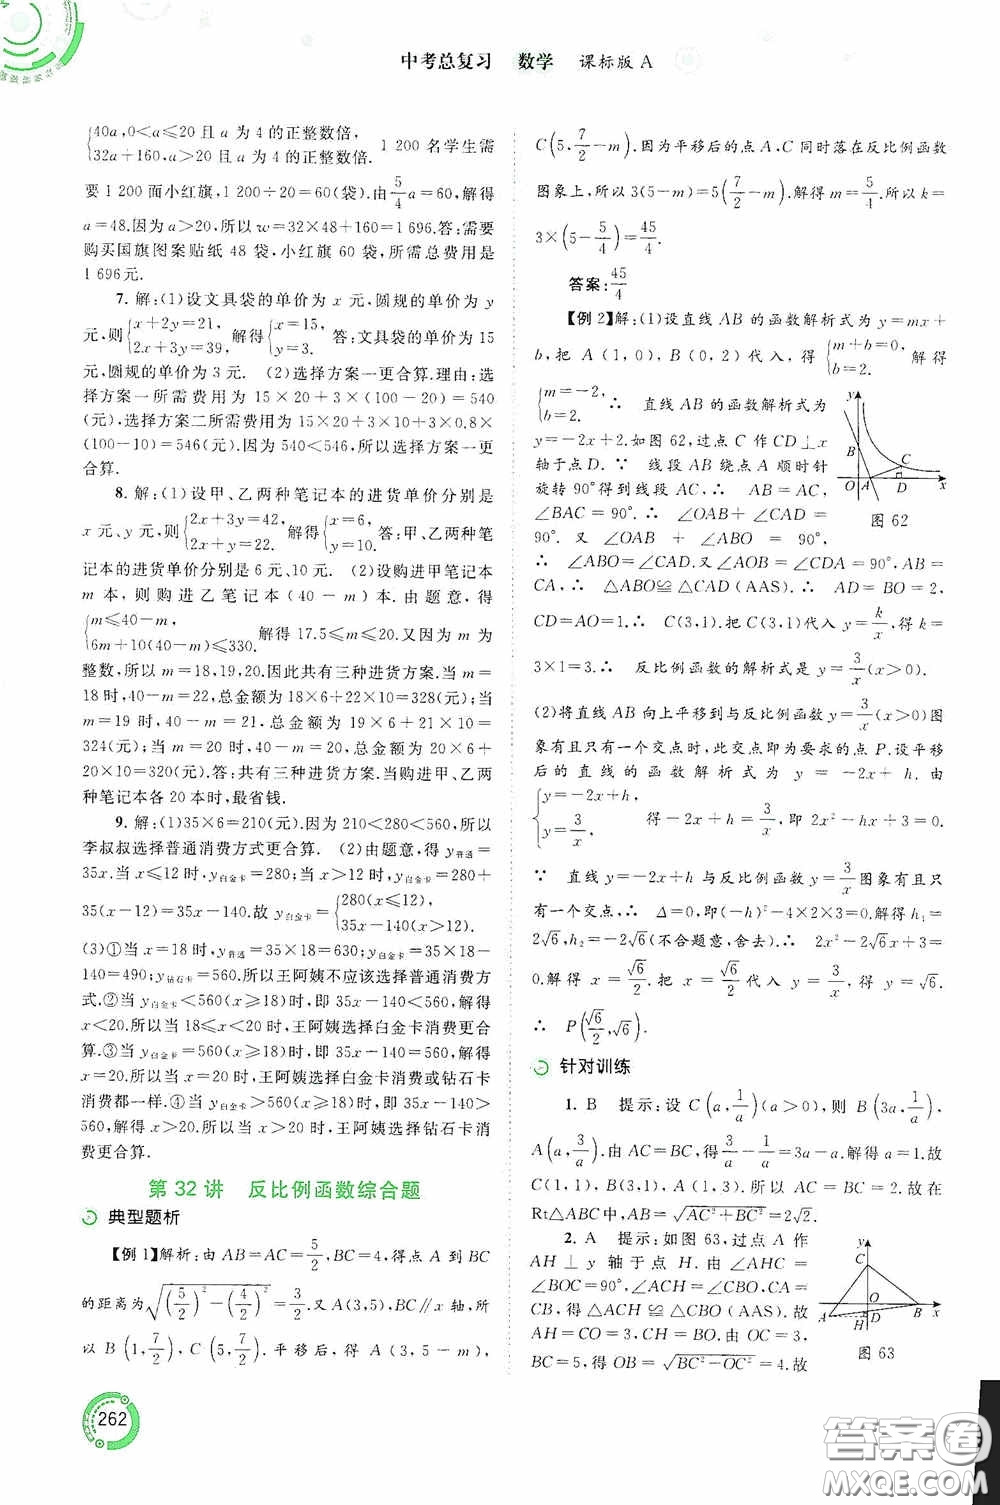 中考总复习 数学 课标版 A
{40a,0<a≤20且a为4的正整数倍,
32a+160,a>20且a为4的正整数倍. 1 200名学生需
要1 200面小红旗,1 200÷20=60(袋).由5/4a=60,解得
a=48.因为a>20,所以w=32×48+160=1 696.答:需要
购买国旗图案贴纸 48 袋,小红旗 60 袋,所需总费用为
1 696元.
7. 解:(1)设文具袋的单价为 x 元,圆规的单价为 y
元,则{x+2y=21, 2x+3y=39, 解得{x=15, y=3. 答:文具袋的单价为 15
元,圆规的单价为 3 元. (2)选择方案一更合算.理由:选
择方案一所需费用为 15×20+3×(100-20)=540
(元).选择方案二所需费用为 15×20+3×10+3×0.8×
(100-10)=546(元).因为 540<546,所以选择方案一更
合算.
8. 解:(1)设甲、乙两种笔记本的进货单价分别是
x 元,y 元,则{2x+3y=42, 2x+y=22. 解得{x=6, y=10. 答:甲、乙两种笔
记本的进货单价分别是 6 元、10 元. (2)设购进甲笔记本
m 本, 则购进乙笔记本 (40-m) 本. 由题意, 得
{m≤40-m, 6m+10(40-m)≤330. 解得 17.5≤m≤20.又因为 m 为
整数,所以 m=18,19,20.因此共有三种进货方案.当 m=
18时,40-m=22,总金额为 18×6+22×10=328(元);当
m=19 时,40-m=21,总金额为 19×6+21×10=
324(元);当 m=20 时,40-m=20,总金额为 20×6+
20×10=320(元).答:共有三种进货方案,当购进甲、乙两
种笔记本各 20 本时,最省钱.
9. 解:(1)35×6=210(元).因为 210<280<560,所以
李叔叔选择普通消费方式更合算. (2)由题意,得 y普通=
35x.当 x≤12 时,y白金卡=280;当 x>12 时,y白金卡=280+
35(x-12)=35x-140.故 y白金卡={280(x≤12), 35x-140(x>12).
(3)①当 x=18 时,y普通=35x=630;y白金卡=35×18-
140=490;y钻石卡=560.所以王阿姨不应该选择普通消费方
式.②当 y白金卡<560(x≥18)时,即 35x-140<560,解得
x<20.所以当 18≤x<20 时,王阿姨选择白金卡消费更合
算.③当 y白金卡=560(x≥18)时,即 35x-140=560,解得
x=20.所以当 x=20 时,王阿姨选择白金卡或钻石卡
消费都一样.④当 y白金卡>560(x≥18)时,即 35x-140>
560,解得 x>20.所以当 x>20 时,王阿姨选择钻石卡消
费更合算.
第 32 讲 反比例函数综合题
典型题析
【例 1】解析:由 AB=AC=5/2,BC=4,得点 A 到 BC
的距离为√((5/2)²-(4/2)²)=3/2.又 A(3,5),BC∥x 轴,所
以 B(1,7/2),C(5,7/2).平移后,得 A(3,5-m),
C(5,7/2-m).因为平移后的点 A、C 同时落在反比例函数
图象上,所以 3(5-m)=5(7/2-m).解得 m=5/4.所以 k=
3×(5-5/4)=45/4.
答案:45/4
【例 2】解:(1)设直线 AB 的函数解析式为 y=mx+
b,把 A(1,0),B(0,2)代入,得{m+b=0, b=2. 解得
{m=-2, b=2. ∴ 直线 AB 的函数解析式为
y=-2x+2.如图 62,过点 C 作 CD⊥x
轴于点 D.∵ 线段 AB 绕点 A 顺时针
旋转 90°得到线段 AC,∴ AB=AC,
∠BAC=90°.∴ ∠OAB+∠CAD=
90°. 又 ∠OAB + ∠ABO = 90°,
∴ ∠ABO=∠CAD.又∠AOB=∠CDA=90°,AB=
CA,∴ △ABO≌△CAD(AAS).∴ AD=BO=2,
CD=AO=1.∴ C(3,1).把 C(3,1)代入 y=k/x,得 k=
3×1=3.∴ 反比例函数的解析式是 y=3/x(x>0).
(2)将直线 AB 向上平移到与反比例函数 y=3/x(x>0)图
象有且只有一个交点时,此交点即为要求的点 P.设平移
后的直线的函数解析式为 y=-2x+h. 由
{y=-2x+h, y=3/x. 得-2x+h=3/x,即 2x²-hx+3=0.
∵ 直线 y=-2x+h 与反比例函数 y=3/x图象有且只
有一个交点,∴ Δ=0,即(-h)²-4×2×3=0.解得 h₁=
2√6,h₂=-2√6(不合题意,舍去).∴ 2x²-2√6x+3=
0.解得 x=√6/2. 把 x=√6/2 代入 y=3/x,得 y=√6.
∴ P(√6/2,√6).
y
B
C
O
A
D
x
图 62
针对训练
1. B 提示:设 C(a,1/a)(a>0),则 B(3a,1/a),
A(a,3/a).由 AC=BC,得3/a-1/a=3a-a.解得 a=1.故
C(1,1),B(3,1),A(1,3).所以 AC=BC=2.故在
Rt△ABC 中,AB=√(AC²+BC²)=2√2.
2. A 提示:如图 63,过点 A 作
AH⊥y 轴于点 H. 由∠AHC=
∠BOC=90°,∠ACH=∠CBO,CA=
CB,得△ACH≌△CBO(AAS).故
AH=CO=3,CH=BO. 由 AC=
BC=5,得 OB=√(BC²-OC²)=4.故
y
C
O
A
H
D
B
x
图 63
262
答案圈
MXQE.COM